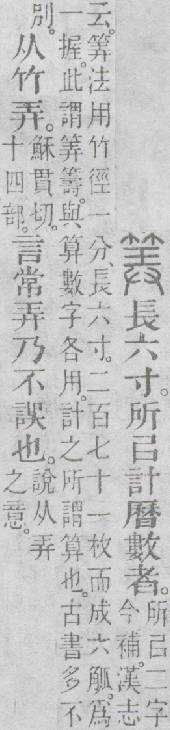 筭長六寸。所㠯計曆數者。所㠯二字
今補。漢志
云。筭法用竹徑一分。長六寸。二百七十一枚而成六觚。爲
一握。此謂筭籌。與算數字各用。計之所謂算也。古書多不
別。从竹弄。穌貫切。
十四部。言常弄乃不誤也。說从弄
之意。